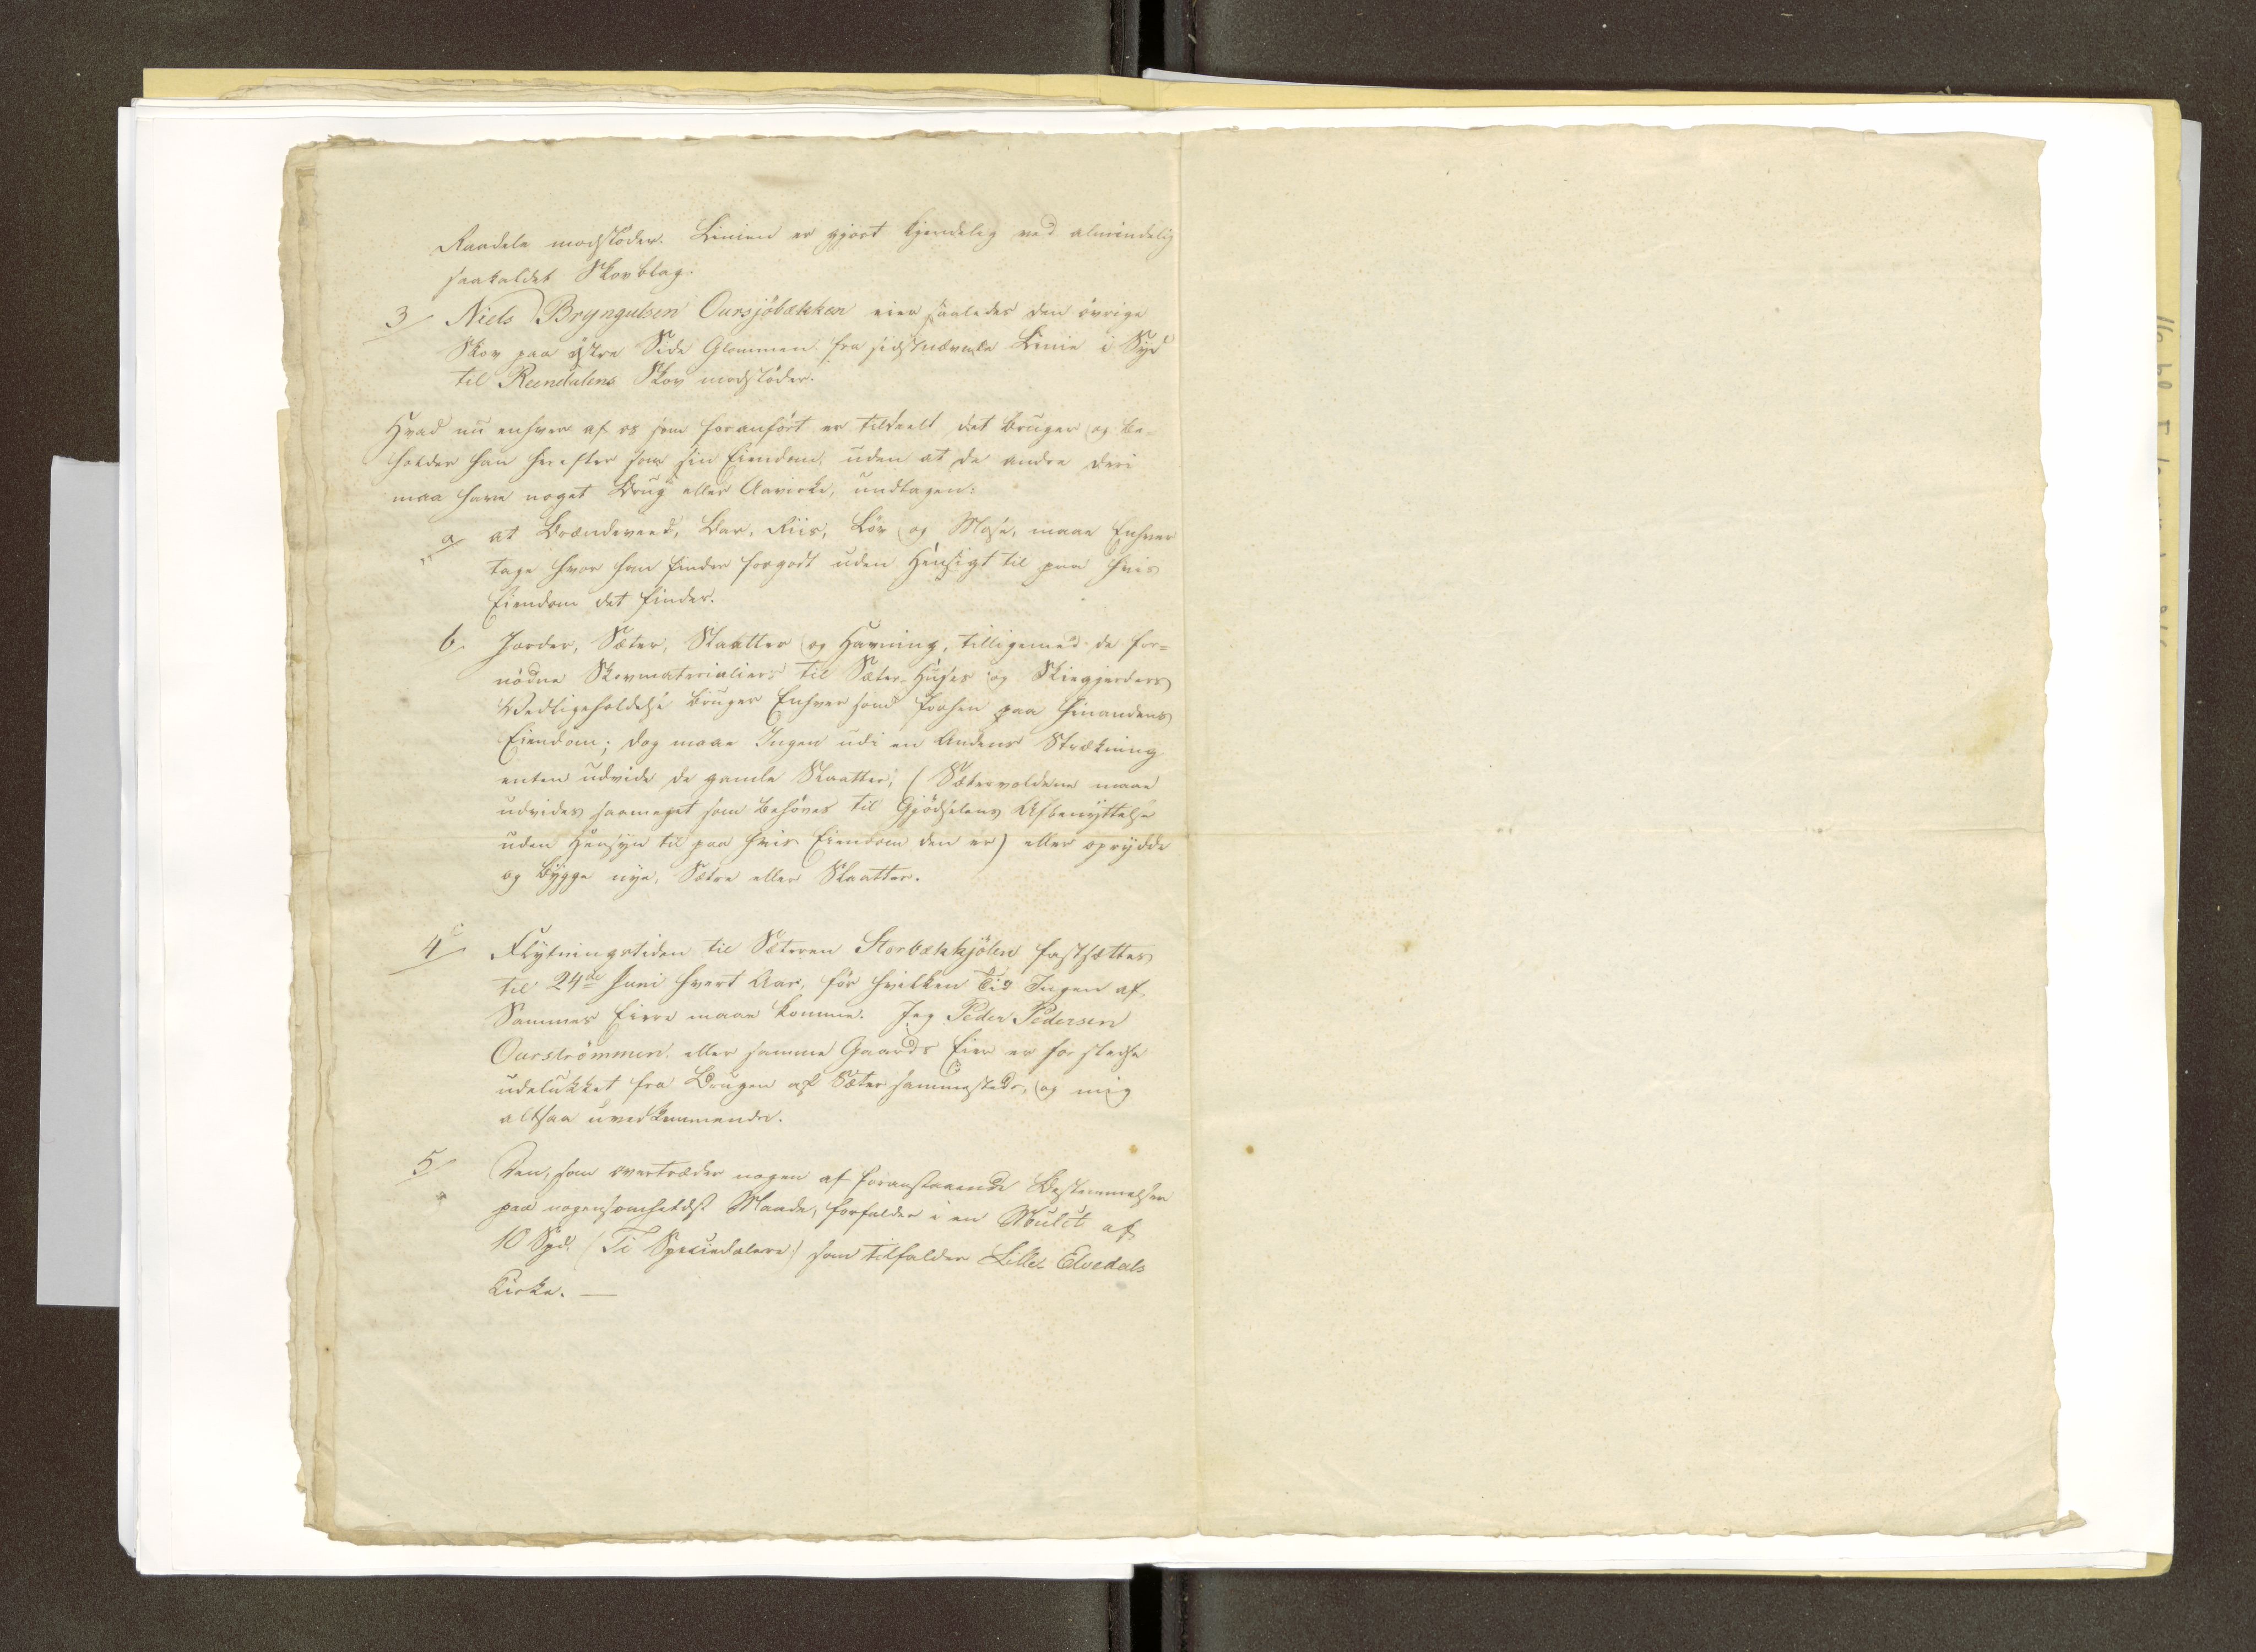 Raadele modstöder. Linien er gjort kjendelig ved almindelig
saakaldet Skovblag.
3/ Niels Bryngulsen Oursjöbækken eier saaledes den övrige
Skov paa östre Side Glommen fra sidstnævnte Linie i Syd
til Reendalens Skov modstöder.
Hvad nu enhver af os som foranfört er tildeelt det bruger og be-
holder han herefter som sin Eiendom, uden at de andre deri
maa have noget Brug eller Aavirke, undtagen:
a/ at Brændeveed, Bar, Riis, Löv og Mose, maae Enhver
tage hvor han finder forgodt uden Hensigt til paa hvis
Eiendom det findes.
b. Jorder, Sæter, Slaatter og Havning, tilligemed de for=
nödne Skovmaterialier til Sæter-Huses og Skiegjerders
Vedligeholdelse bruger Enhver som forhen paa hinandens
Eiendom; dog maae Ingen udi en Andens Strækning
enten udvide de gamle Slaatter, (Sætervoldene maae
udvides saameget som behöves til Gjödselens Afbenyttelse
uden Hensyn til paa hvis Eiendom den er) eller oprydde
og bygge nye, Sætre eller Slaatter.
4/ Flytningstiden til Sæteren Storbækkjölen fastsættes
til 24de Juni hvert Aar, för hvilken Tid Ingen af
Sammes Eiere maae komme. Jeg Peder Pedersen
Ourströmmen eller samme Gaards Eier er for stedse
udelukket fra Brugen af Sæter sammesteds, og mig
altsaa uvedkommende.
5/ Den, som overtræder nogen af foranstaaende Bestemmelser
paa nogensomhelst Maade, forfalder i en Mulct af
10 Spd. (Ti Speciedalere) som tilfalder Lille Elvedals
Kirke. —